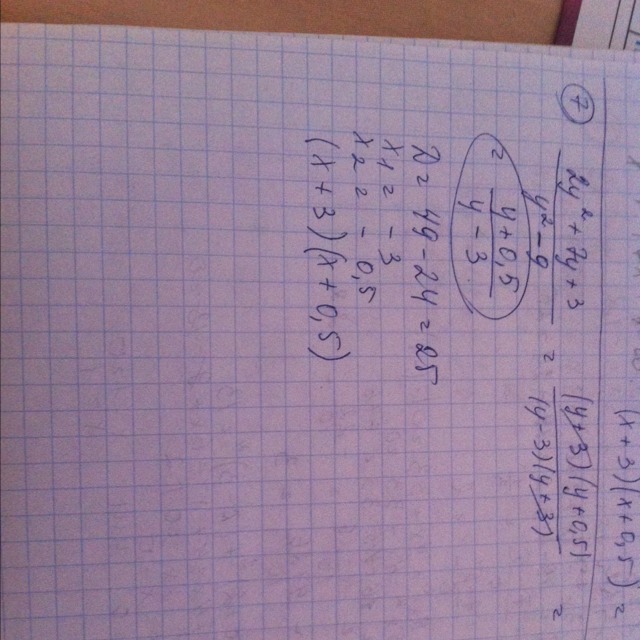 (x+3)(x+0,5) =
7
2y²+7y+3 / y²-9 = (y+3)(y+0,5) / (y-3)(y+3) =
= y+0,5 / y-3
D = 49-24 = 25
x1 = -3
x2 = -0,5
(x+3)(x+0,5)